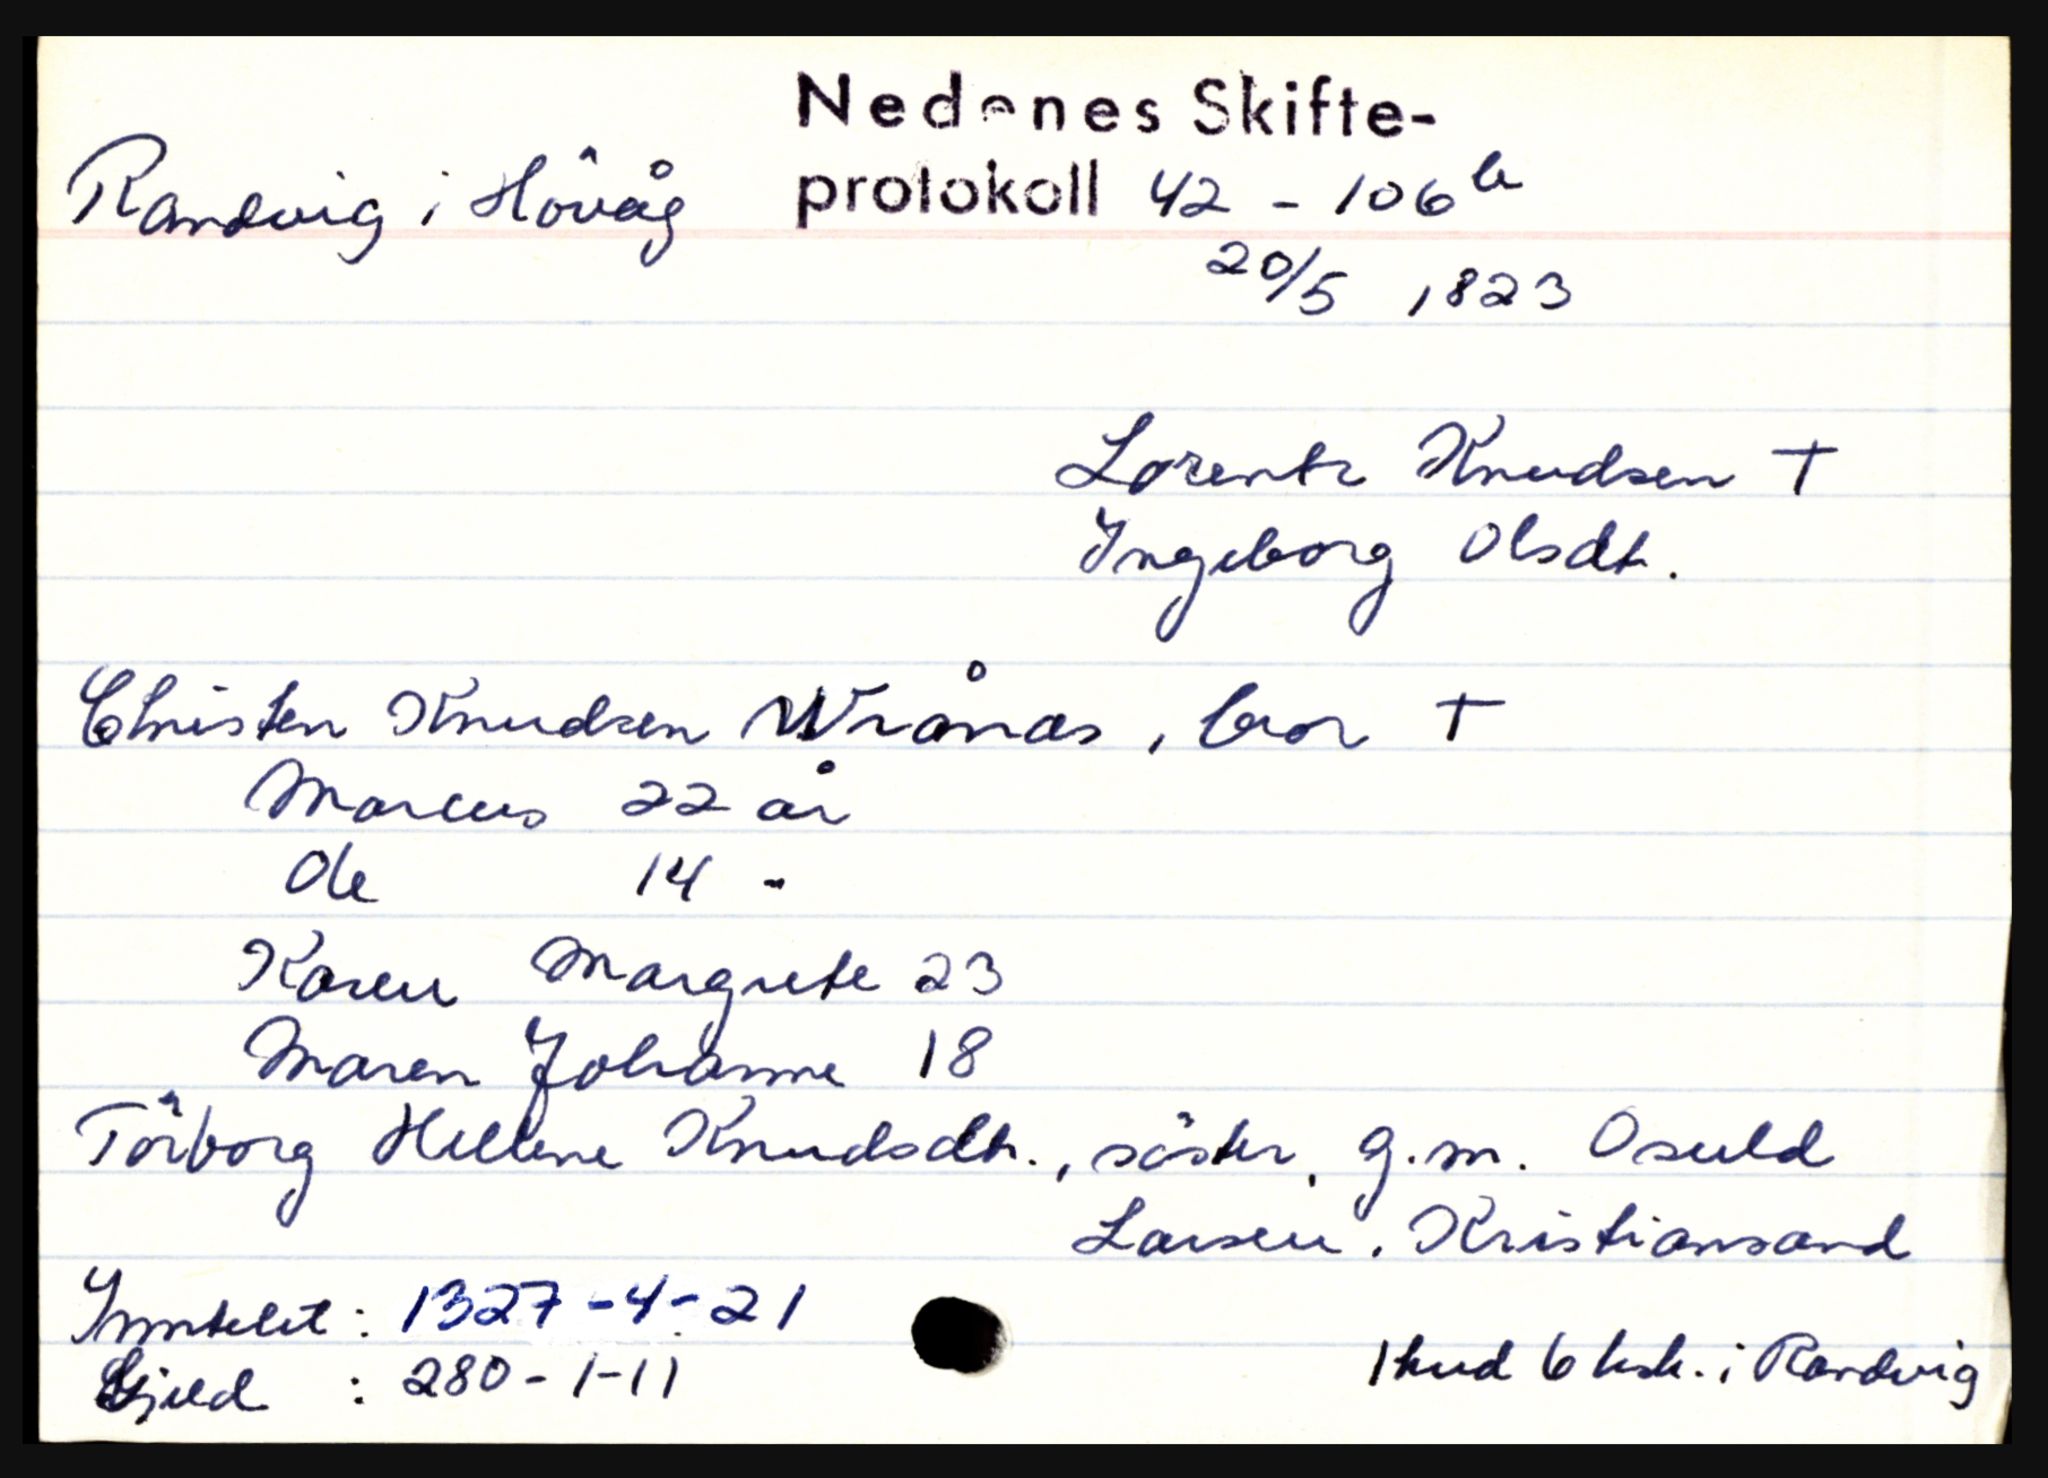 Nedenes Skifte-
Randvig i Hövåg protokoll 42 - 106 b
20/5 1823
Lorentz Knudsen †
Ingeborg Olsdt.
Christen Knudsen Wrånes, bror †
Marcus 22 år
Ole 14 "
Karen Margrete 23
Maren Johanne 18
Törborg Hellene Knudsdtr., söster, g.m. Osuld
Larsen, Kristiansand
Inntekt: 1327-4-21
Gjeld : 280-1-11
1 hud 6 ksk. i Randvig